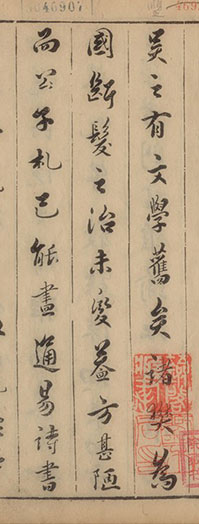 吳之有文學舊矣諸樊為
國斷髮之治未變葢方甚陋
而公子札已能盡通易詩書